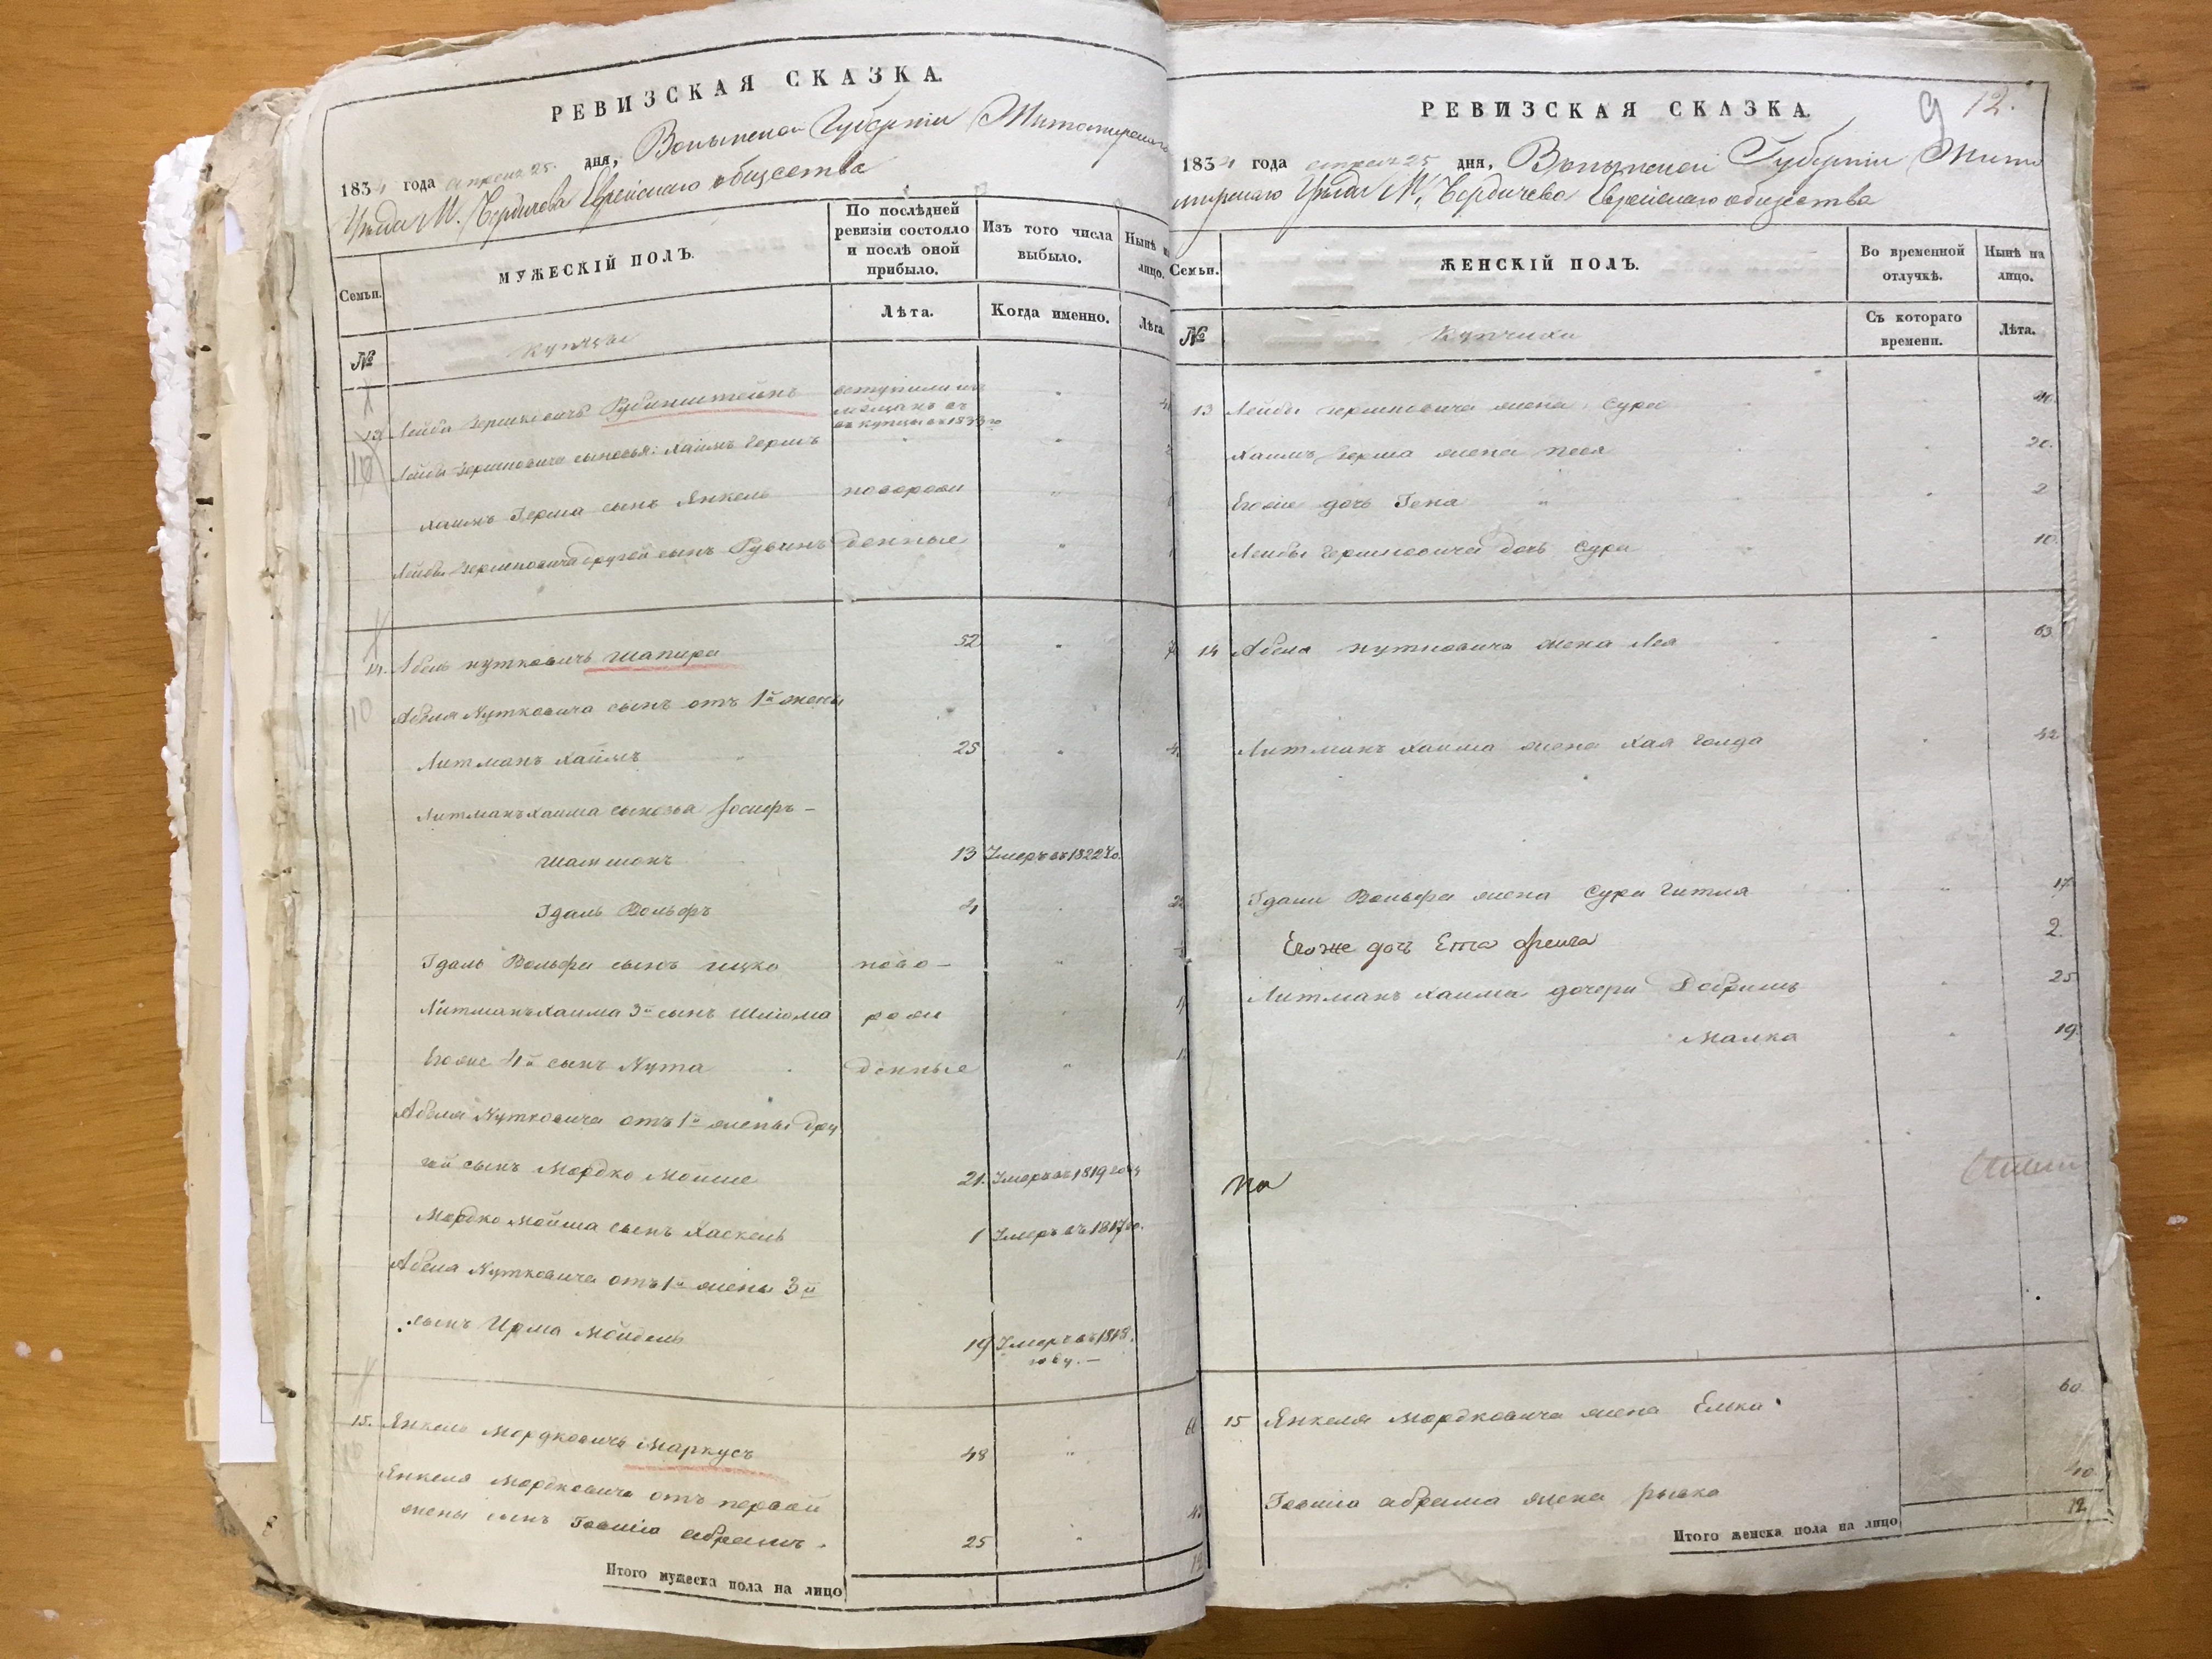 РЕВИЗСКАЯ СКАЗКА.
1834 года апреля 25. дня, Волынской Губерніи Житомирскаго
Уѣзда М. Бердичева Еврейскаго общества
Семьи.
МУЖЕСКІЙ ПОЛЪ.
По послѣдней
ревизіи состояло
и послѣ оной
прибыло.
Изъ того числа
выбыло.
Нынѣ на
лицо.
№
Купцы
Лѣта.
Когда именно.
Лѣта.
13 Лейба Гершковичъ Рубинштейнъ
вступили изъ
мещанъ въ
въ купцы въ 1833 го
Лейбы Гершковича сыновья: Хаимъ Гершъ
Хаимъ Герша сынъ Янкель новорож
Лейбы Гершковича другой сынъ Рувинъ денные
14. Абель Нутковичъ Шапира 52
Абеля Нутковича сынъ отъ 1й жены
Литманъ Хаимъ 25
Литманъ Хаима сыновья Иосифъ -
Шимшонъ 13 Умеръ въ 1822 го.
Гдаль Вольфъ 4
Гдаль Вольфа сынъ Ицко ново-
Литманъ Хаима 3й сынъ Шлиома рож
Егоже 4й сынъ Нута денные
Абеля Нутковича отъ 1й жены дру
гой сынъ Мордко Мошке 21. Умеръ въ 1819 году
Мордко Мойша сынъ Хаскель 1 Умеръ въ 1817 го.
Абеля Нутковича отъ 1й жены 3й
сынъ 19 Умеръ въ 1818.
году. -
15. Янкель Мордковичъ Маркусъ 48
Янкеля Мордковича отъ первой
жены сынъ Абрамъ. 25
Итого мужеска пола на лицо
РЕВИЗСКАЯ СКАЗКА. 9 12.
1834 года апреля 25 дня, Волынской Губерніи Жито
мирскаго Уѣзда М. Бердичева Еврейскаго общества
Семьи.
ЖЕНСКІЙ ПОЛЪ.
Во временной
отлучкѣ.
Нынѣ на
лицо.
№
Купчихи
Съ котораго
времени.
Лѣта.
13 Лейбы Гершковича жена Сура
Хаимъ Герша жена Песя 20.
Егоже дочь Гена 2
Лейбы Гершковича дочь Сура 10.
14 Абеля Нутковича жена Лея 63
Литманъ Хаима жена Хая Голда 42
Гдали Вольфа жена Сура Гитля 17
Егоже дочь Ента Фрейга 2.
Литманъ Хаима дочери Добришъ 25
Малка 19
15 Янкеля Мордковича жена Елка 60
Абрама жена Рывка 40.
Итого женска пола на лицо 12